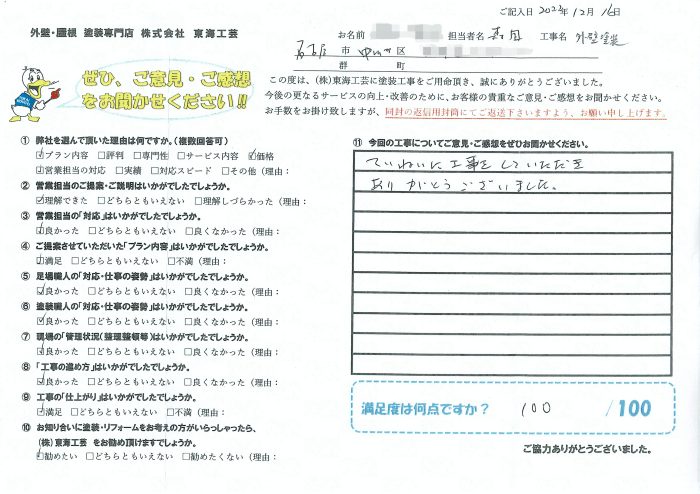 ご記入日 2023年12月16日
外壁・屋根 塗装専門店 株式会社 東海工芸
お名前 担当者名 工事名 外壁塗装
名古屋 市 区
郡 町
ぜひ、ご意見・ご感想
をお聞かせください!!
この度は、(株)東海工芸に塗装工事をご用命頂き、誠にありがとうございました。
今後の更なるサービスの向上・改善のために、お客様の貴重なご意見・ご感想をお聞かせください。
お手数をお掛け致しますが、同封の返信用封筒にてご返送下さいますよう、お願い申し上げます。
① 弊社を選んで頂いた理由は何ですか。(複数回答可)
☑プラン内容 □評判 □専門性 □サービス内容 ☑価格
☑営業担当の対応 □実績 □対応スピード □その他(理由:
② 営業担当のご提案・ご説明はいかがでしたでしょうか。
☑理解できた □どちらともいえない □理解しづらかった(理由:
③ 営業担当の「対応」はいかがでしたでしょうか。
☑良かった □どちらともいえない □良くなかった(理由:
④ ご提案させていただいた「プラン内容」はいかがでしたでしょうか。
☑満足 □どちらともいえない □不満(理由:
⑤ 足場職人の「対応・仕事の姿勢」はいかがでしたでしょうか。
☑良かった □どちらともいえない □良くなかった(理由:
⑥ 塗装職人の「対応・仕事の姿勢」はいかがでしたでしょうか。
☑良かった □どちらともいえない □良くなかった(理由:
⑦ 現場の「管理状況(整理整頓等)はいかがでしたでしょうか。
☑良かった □どちらともいえない □良くなかった(理由:
⑧ 「工事の進め方」はいかがでしたでしょうか。
☑良かった □どちらともいえない □良くなかった(理由:
⑨ 工事の「仕上がり」はいかがでしたでしょうか。
☑満足 □どちらともいえない □不満(理由:
⑩ お知り合いに塗装・リフォームをお考えの方がいらっしゃったら、
(株)東海工芸 をお勧め頂けますでしょうか。
☑勧めたい □どちらともいえない □勧めたくない(理由:
⑪ 今回の工事についてご意見・ご感想をぜひお聞かせください。
ていねいに工事をしていただき
ありがとうございました。
満足度は何点ですか? 100 /100
ご協力ありがとうございました。